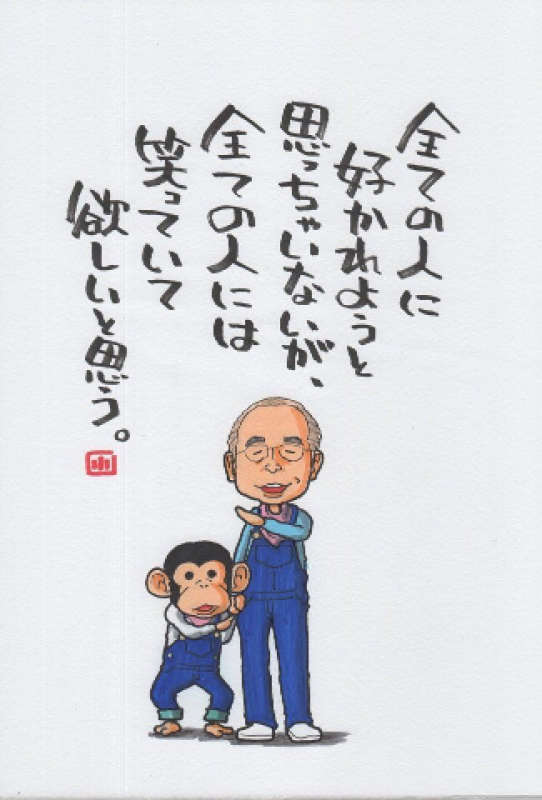 全ての人に
好かれようと
思っちゃいないが、
全ての人には
笑っていて
欲しいと思う。